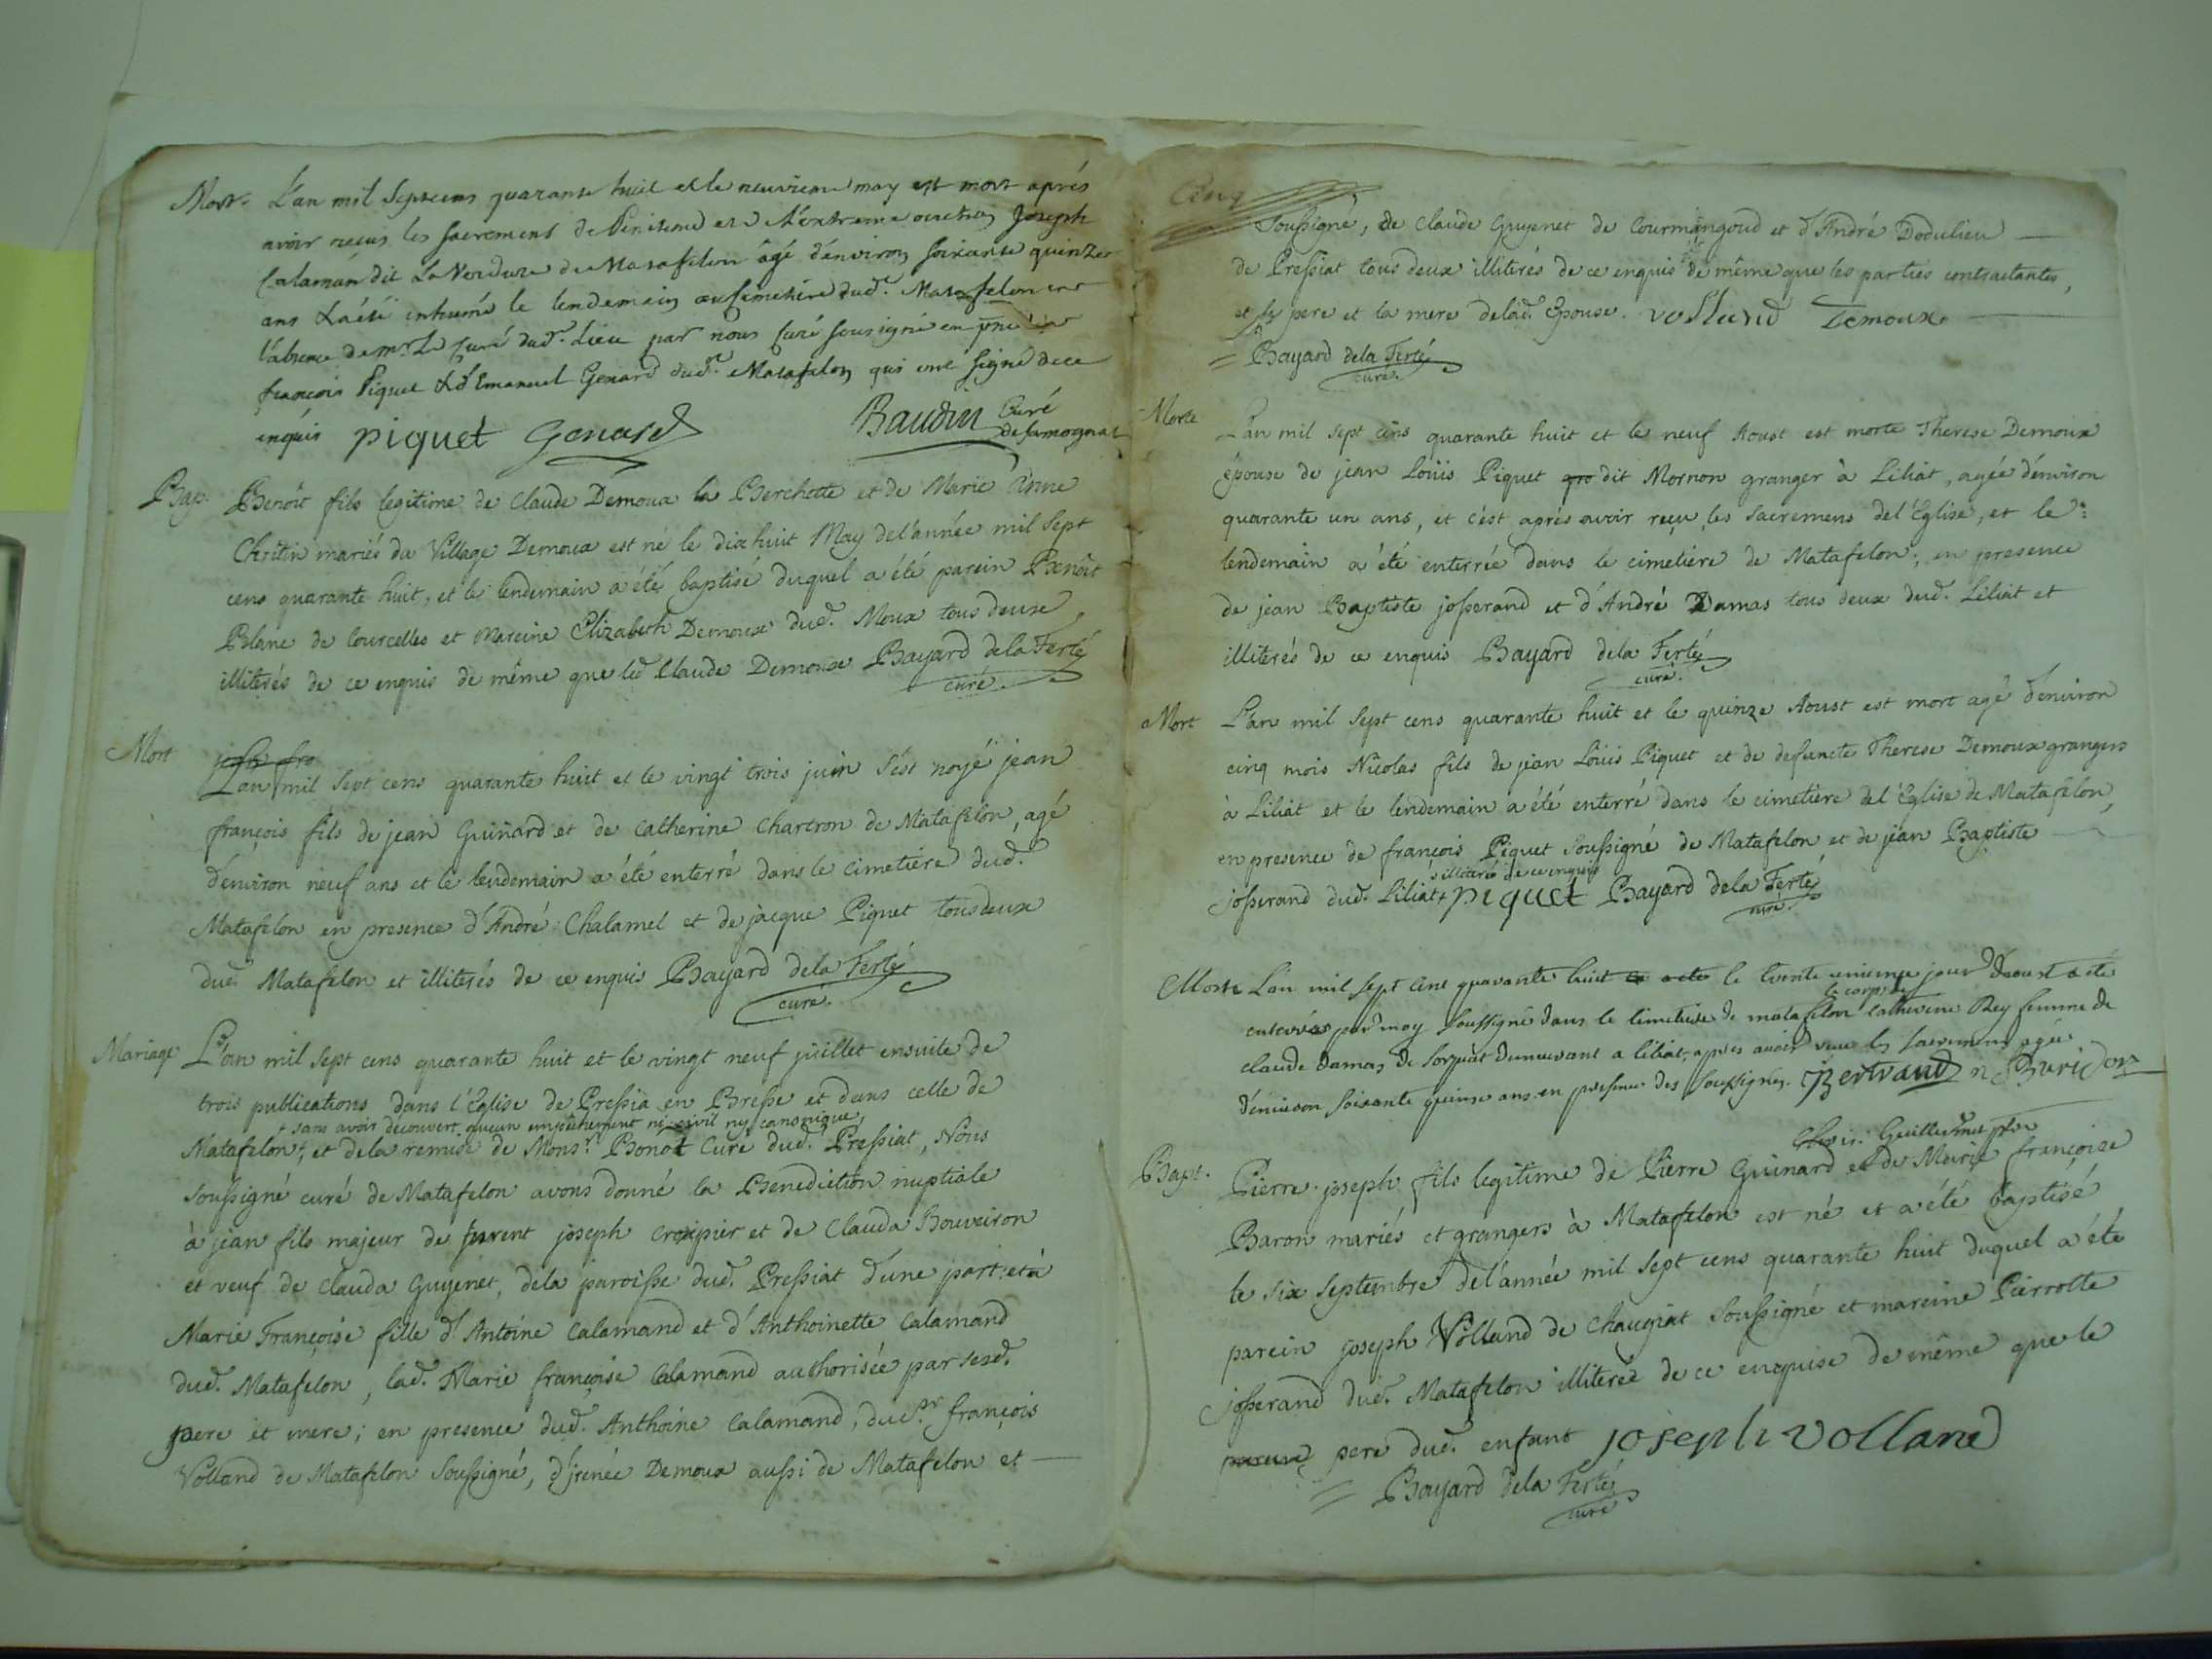 Mort. L'an mil Septcens quarante huit et le neuvieme may est mort aprés
avoir reçus les sacremens de Penitence et d L'extreme onction Joseph
Calaman dit La Verdure de Matafelon âgé d'environ soixante quinze
ans & a été inhumé le lendemain au cimetiére dud. Matafelon en
l'absence de mr. Le Curé dud. Lieu par nous Curé sousigné en pnce de
françois Piquet & d'Emanuel Genard dud. Matafelon qui ont signé de ce
enquis piquet Genard Baudin Curé de samognat
Bap. Benôit fils legitime de Claude Demoux la Berchotte et de Marie Anne
Chritin mariés du Village Demoux est né le dix huit May de l'année mil sept
cens quarante huit, et le lendemain a été baptisé duquel a été parein Benôit
Blanc de Courcelles et Mareine Elizabeth Demoux dud. Moux tous deux
illiterés de ce enquis de même que led Claude Demoux Bayard dela Ferté
curé.
Mort L'an mil sept cens quarante huit et le vingt trois juin s'est noyé jean
françois fils de jean Guinard et de Catherine Chartron de Matafelon, agé
d'environ neuf ans et le lendemain a été enterré dans le cimetiére dud.
Matafelon en presence d'André Chalamel et de jacque Piquet tous deux
dud. Matafelon et illiterés de ce enquis Bayard dela Ferté
curé.
Mariage L'an mil sept cens quarante huit et le vingt neuf juillet ensuite de
trois publications dans l'Eglise de Pressia en Bresse et dans celle de
+ sans avoir découvert aucun empêchement ni civil ny canonique
Matafelon+, et dela remise de Monsr. Bonot Curé dud. Pressiat, Nous
soussigné curé de Matafelon avons donné la Benediction nuptiale
à jean fils majeur de furent joseph Croipier et de Clauda Bouveiron
et veuf de Clauda Guyenet, dela paroisse dud. Pressiat d'une part et à
Marie Françoise fille d'Antoine Calamand et d'Anthoinette Calamand
dud. Matafelon, lad. Marie françoise Calamand authorisée par sesd.
pere et mere; en presence dud. Anthoine Calamand, du sr. françois
Volland de Matafelon Soussigné, d'jrenée Demoux aussi de Matafelon et
Cinq
soussigné, de Claude Guyenet de Courmangoud et d'André Dodulieu
de Pressiat tous deux illiterés de ce enquis de même que les parties contractantes,
et le pere et la mere delad. Epouse. volland Demoux
= Bayard dela Ferté
curé.
Morte L'an mil sept cens quarante huit et le neuf Aoust est morte Therese Demoux
épouse de jean Loüis Piquet gro dit Mornon granger à Liliat, agée d'environ
quarante un ans, et c'est aprés avoir reçu les sacremens del'Eglise, et le
lendemain a été enterrée dans le cimetiére de Matafelon, en presence
de jean Baptiste josserand et d'André Damas tous deux dud. Liliat et
illiterés de ce enquis Bayard dela Ferté
curé.
Mort L'an mil sept cens quarante huit et le quinze Aoust est mort agé d'environ
cinq mois Nicolas fils de jean Loüis Piquet et de defuncte Therese Demoux grangers
à Liliat et le lendemain a été enterré dans le cimetiére del'Eglise de Matafelon,
en presence de françois Piquet soussigné de Matafelon et de jean Baptiste
+ illiteré de ce enquis
josserand dud. Liliat+ piquet Bayard dela Ferté
curé.
Morte L'an mil sept cent quarante huit et a ete le trente unieme jour daoust a ete
le corps de
enterrée par moy soussigné dans le cimetiere de matafelon Catherine Rey femme de
claude damas de Sorpiat demeurant a liliat, apres avoir receu les sacremens agée
d'environ soixante quinze ans en presence des soussignes. Bertrand n Buridon
Guillermet ptre
Bapt. Pierre joseph fils legitime de Pierre Guinard et de Marie françoise
Baron mariés et grangers à Matafelon est né et a été baptisé
le six septembre de l'année mil sept cens quarante huit duquel a été
parein joseph Volland de Chaugiat soussigné et mareine Pierrotte
josserand dud. Matafelon illiterée de ce enquise de même que le
pere dud. enfant joseph volland
= Bayard dela Ferté
curé